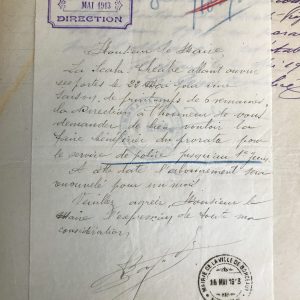 MAI 1913
DIRECTION
Monsieur le Maire
La Scala-Théâtre allant ouvrir
ses portes le 22 pour une
saison de printemps de 6 semaines,
la Direction a l'honneur de vous
demander de bien vouloir la
faire bénéficier du prorata pour
le service de police jusqu'au 1er Juin.
A cette date l'abonnement sera
renouvelé pour un mois.
Veuillez agréer Monsieur le
Maire l'expression de toute ma
considération
MAIRIE DE LA VILLE DE
16 MAI 1913